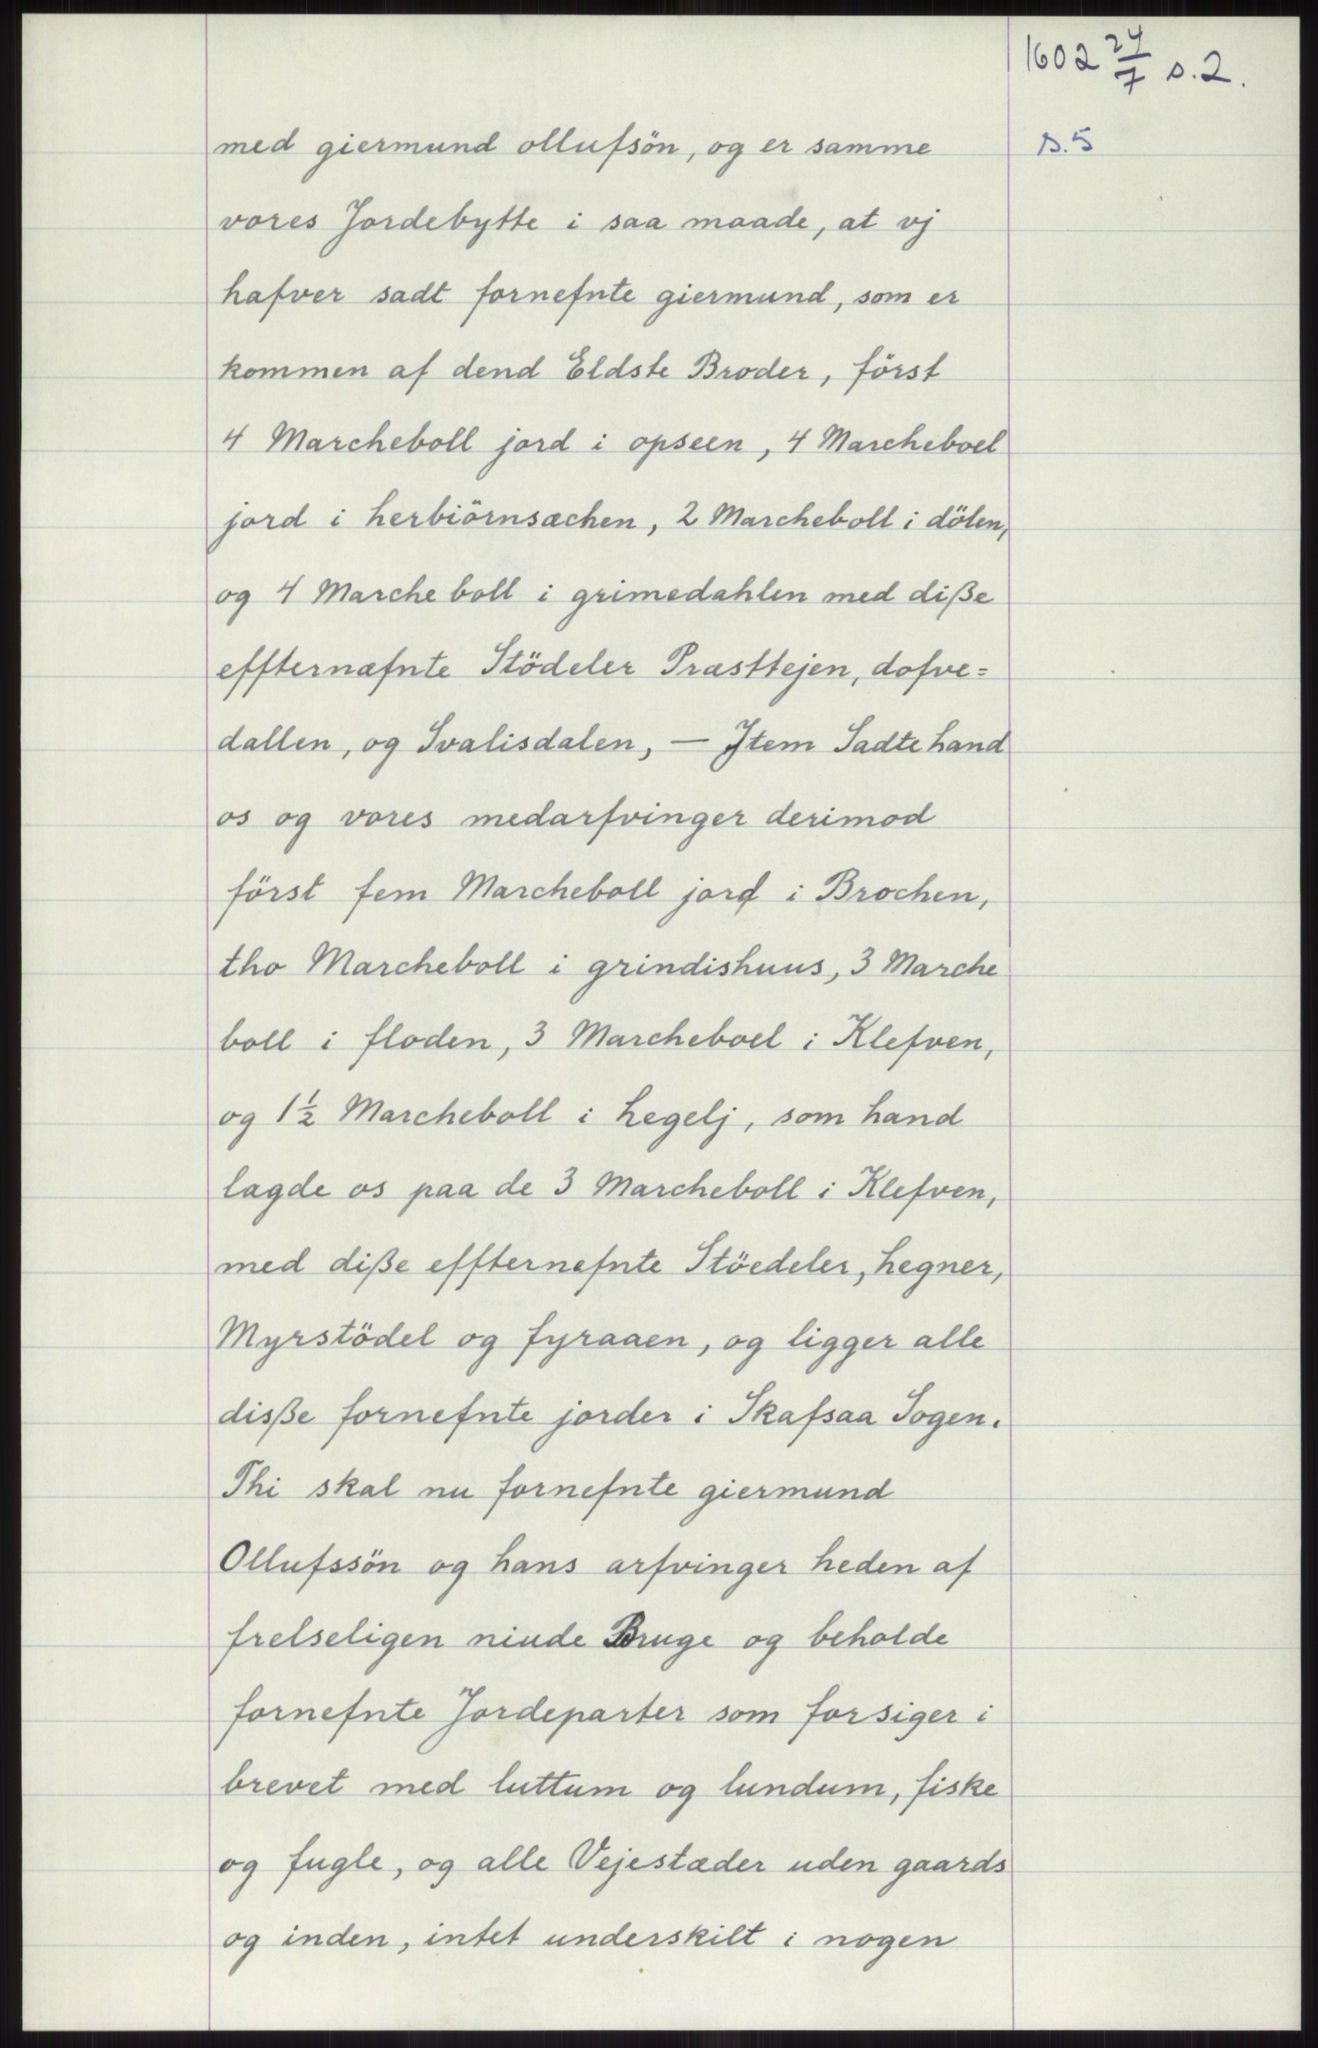 1602 24/7 s.2.
s.5
med giermund ollufsön, og er samme
vores Jordebytte i saa maade, at vj
hafver sadt fornefnte giermund, som er
kommen af dend Eldste Broder, först
4 Marcheboll jord i opseen, 4 Marcheboel
jord i herbiörnsæchen, 2 Marcheboll i dölen,
og 4 Marche boll i grimedahlen med diße
effternæfnte Stödeler Præsttejen, dofve=
dallen, og Svalisdalen, — Jtem Sadte hand
os og vores medarfvinger derimod
först fem Marcheboll jord i Brochen,
tho Marcheboll i grindishuus, 3 Marche
boll i floden, 3 Marcheboel i Klefven,
og 1½ Marcheboll i hegelj, som hand
lagde os paa de 3 Marcheboll i Klefven,
med diße effternefnte Stöedeler, hegner,
Myrstödel og fyraaen, og ligger alle
disße fornefnte jorder i Skafsaa Sogen.
Thi skal nu fornefnte giermund
Ollufssön og hans arfvinger heden af
frelseligen niude Bruge og beholde
fornefnte Jordeparter som forsiger i
brevet med luttum og lundum, fiske
og fugle, og alle Vejestæder uden gaards
og inden, intet underskilt i nogen